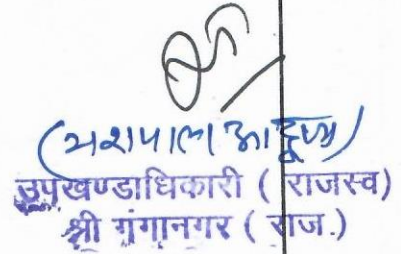 (यशपाल आहूजा)
उपखण्डाधिकारी ( राजस्व)
श्री गंगानगर ( राज.)